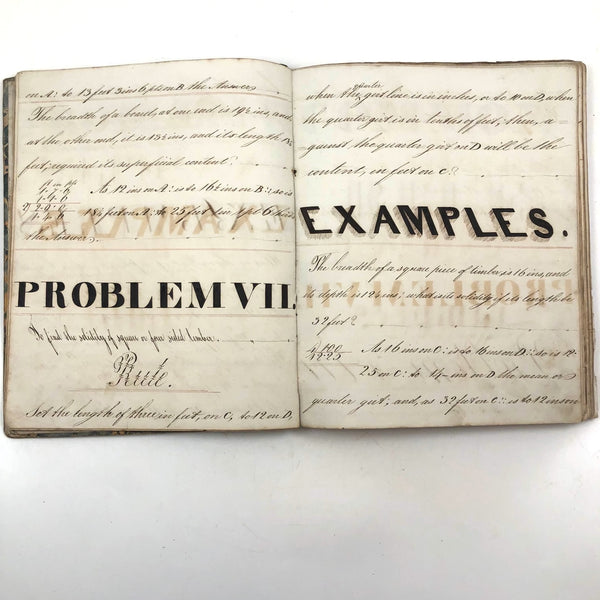 on A: to 13 feet 3 ins 6 pts on B the Answer
The breadth of a board, at one end is 19½ ins, and
at the other end, it is 13½ ins, and its length 18½
feet, required its superficial content?
As 12 ins on A: is to 16½ ins on B:: so is
18½ feet on A: to 25 feet
the Answer.
PROBLEM VII.
To find the solidity of square or four sided timber.
Rule.
Set the length of three in feet, on C, to 12 on D,
quarter
when the girt line is in inches, or to 10 on D, when
the quarter girt is in tenths of feet; then, a=
gainst the quarter girt on D will be the
content, in feet on C.
EXAMPLES.
The breadth of a square piece of timber is 16 ins, and
its depth is 12¼ ins; what is its solidity, if its length be
32 feet?
As 16 ins on C: is to 16 ins on D:: so is 12.
25 on C: to 14 ins on D the mean or
quarter girt, and, as 32 feet on C: is to 12 ins on